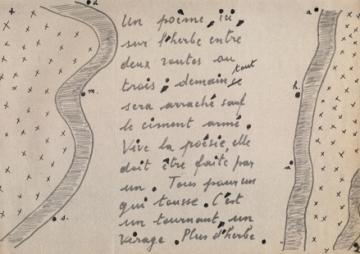 d.
a.
Un poème, ici,
sur l'herbe entre
deux routes ou
h.
trois ; demain tout
m.
sera arraché sauf
le ciment armé.
Vive la poésie, elle
doit être faite par
un. Tous pour un
qui tousse. C'est
d.
un tournant, un
virage. Plus d'herbe.